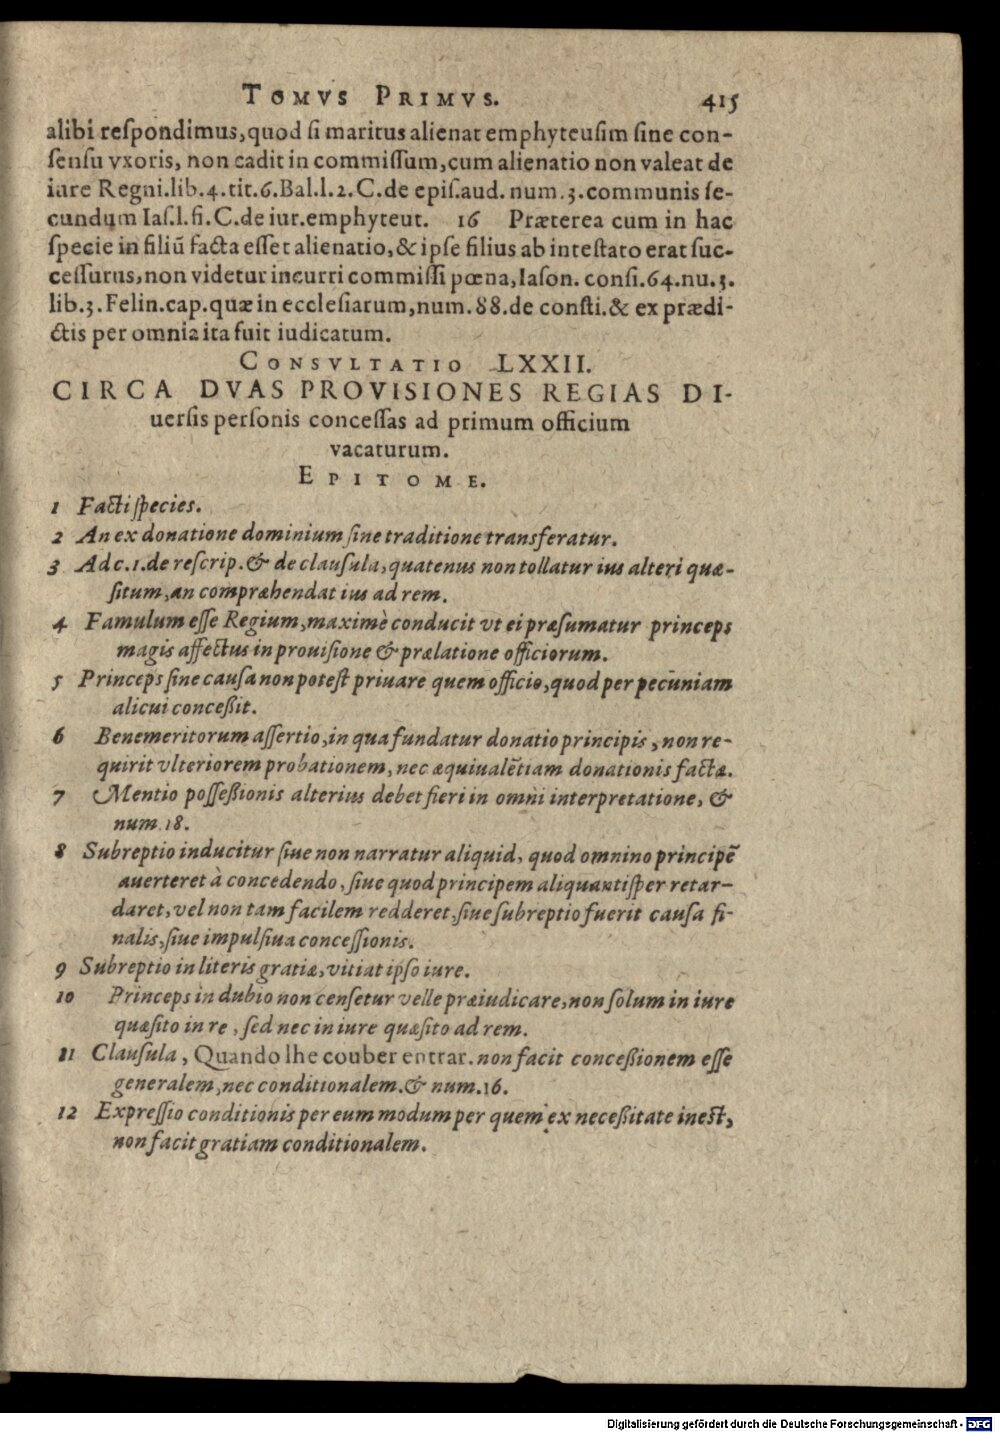 TOMVS PRIMVS. 415
alibi reſpondimus,quod ſi maritus alienat emphyteuſim ſine con-
ſenſu vxoris, non cadit in commiſſum,cum alienatio non valeat de
iure Regni.lib.4.tit.6.Bal.l.2.C.de epiſ.aud. num.3.communis ſe-
cundum Iaſ.l.fi.C.de iur.emphyteut. 16 Præterea cum in hac
ſpecie in filiū facta eſſet alienatio,& ipſe filius ab inteſtato erat ſuc-
ceſſurus,non videtur incurri commiſſi pœna,Iaſon. conſi.64.nu.3.
lib.3.Felin.cap.quæ in eccleſiarum,num.88.de conſti.& ex prædi-
ctis per omnia ita fuit iudicatum.
CONSVLTATIO LXXII.
CIRCA DVAS PROVISIONES REGIAS DI-
uerſis perſonis conceſſas ad primum officium
vacaturum.
EPITOME.
1 Facti ſpecies.
2 An ex donatione dominium ſine traditione transferatur.
3 Ad c.1.de reſcrip.& de clauſula,quatenus non tollatur ius alteri quæ-
ſitum,an compræhendat ius ad rem.
4 Famulum eſſe Regium,maximè conducit vt ei præſumatur princeps
magis affectus in prouiſione & prælatione officiorum.
5 Princeps ſine cauſa non poteſt priuare quem officio,quod per pecuniam
alicui conceßit.
6 Benemeritorum aſſertio,in qua fundatur donatio principis, non re-
quirit vlteriorem probationem, nec æquiualētiam donationis factæ.
7 Mentio poſſeßionis alterius debet fieri in omni interpretatione, &
num.18.
8 Subreptio inducitur ſiue non narratur aliquid, quod omnino principē
auerteret à concedendo, ſiue quod principem aliquantiſper retar-
daret,vel non tam facilem redderet,ſiue ſubreptio fuerit cauſa fi-
nalis,ſiue impulſiua conceſſionis.
9 Subreptio in literis gratiæ,vitiat ipſo iure.
10 Princeps in dubio non cenſetur velle præiudicare,non ſolum in iure
quæſito in re, ſed nec in iure quæſito ad rem.
11 Clauſula, Quando lhe couber entrar. non facit conceßionem eſſe
generalem,nec conditionalem.& num.16.
12 Expreſſio conditionis per eum modum per quem ex neceßitate ineſt,
non facit gratiam conditionalem.
Digitalisierung gefördert durch die Deutsche Forschungsgemeinschaft - DFG